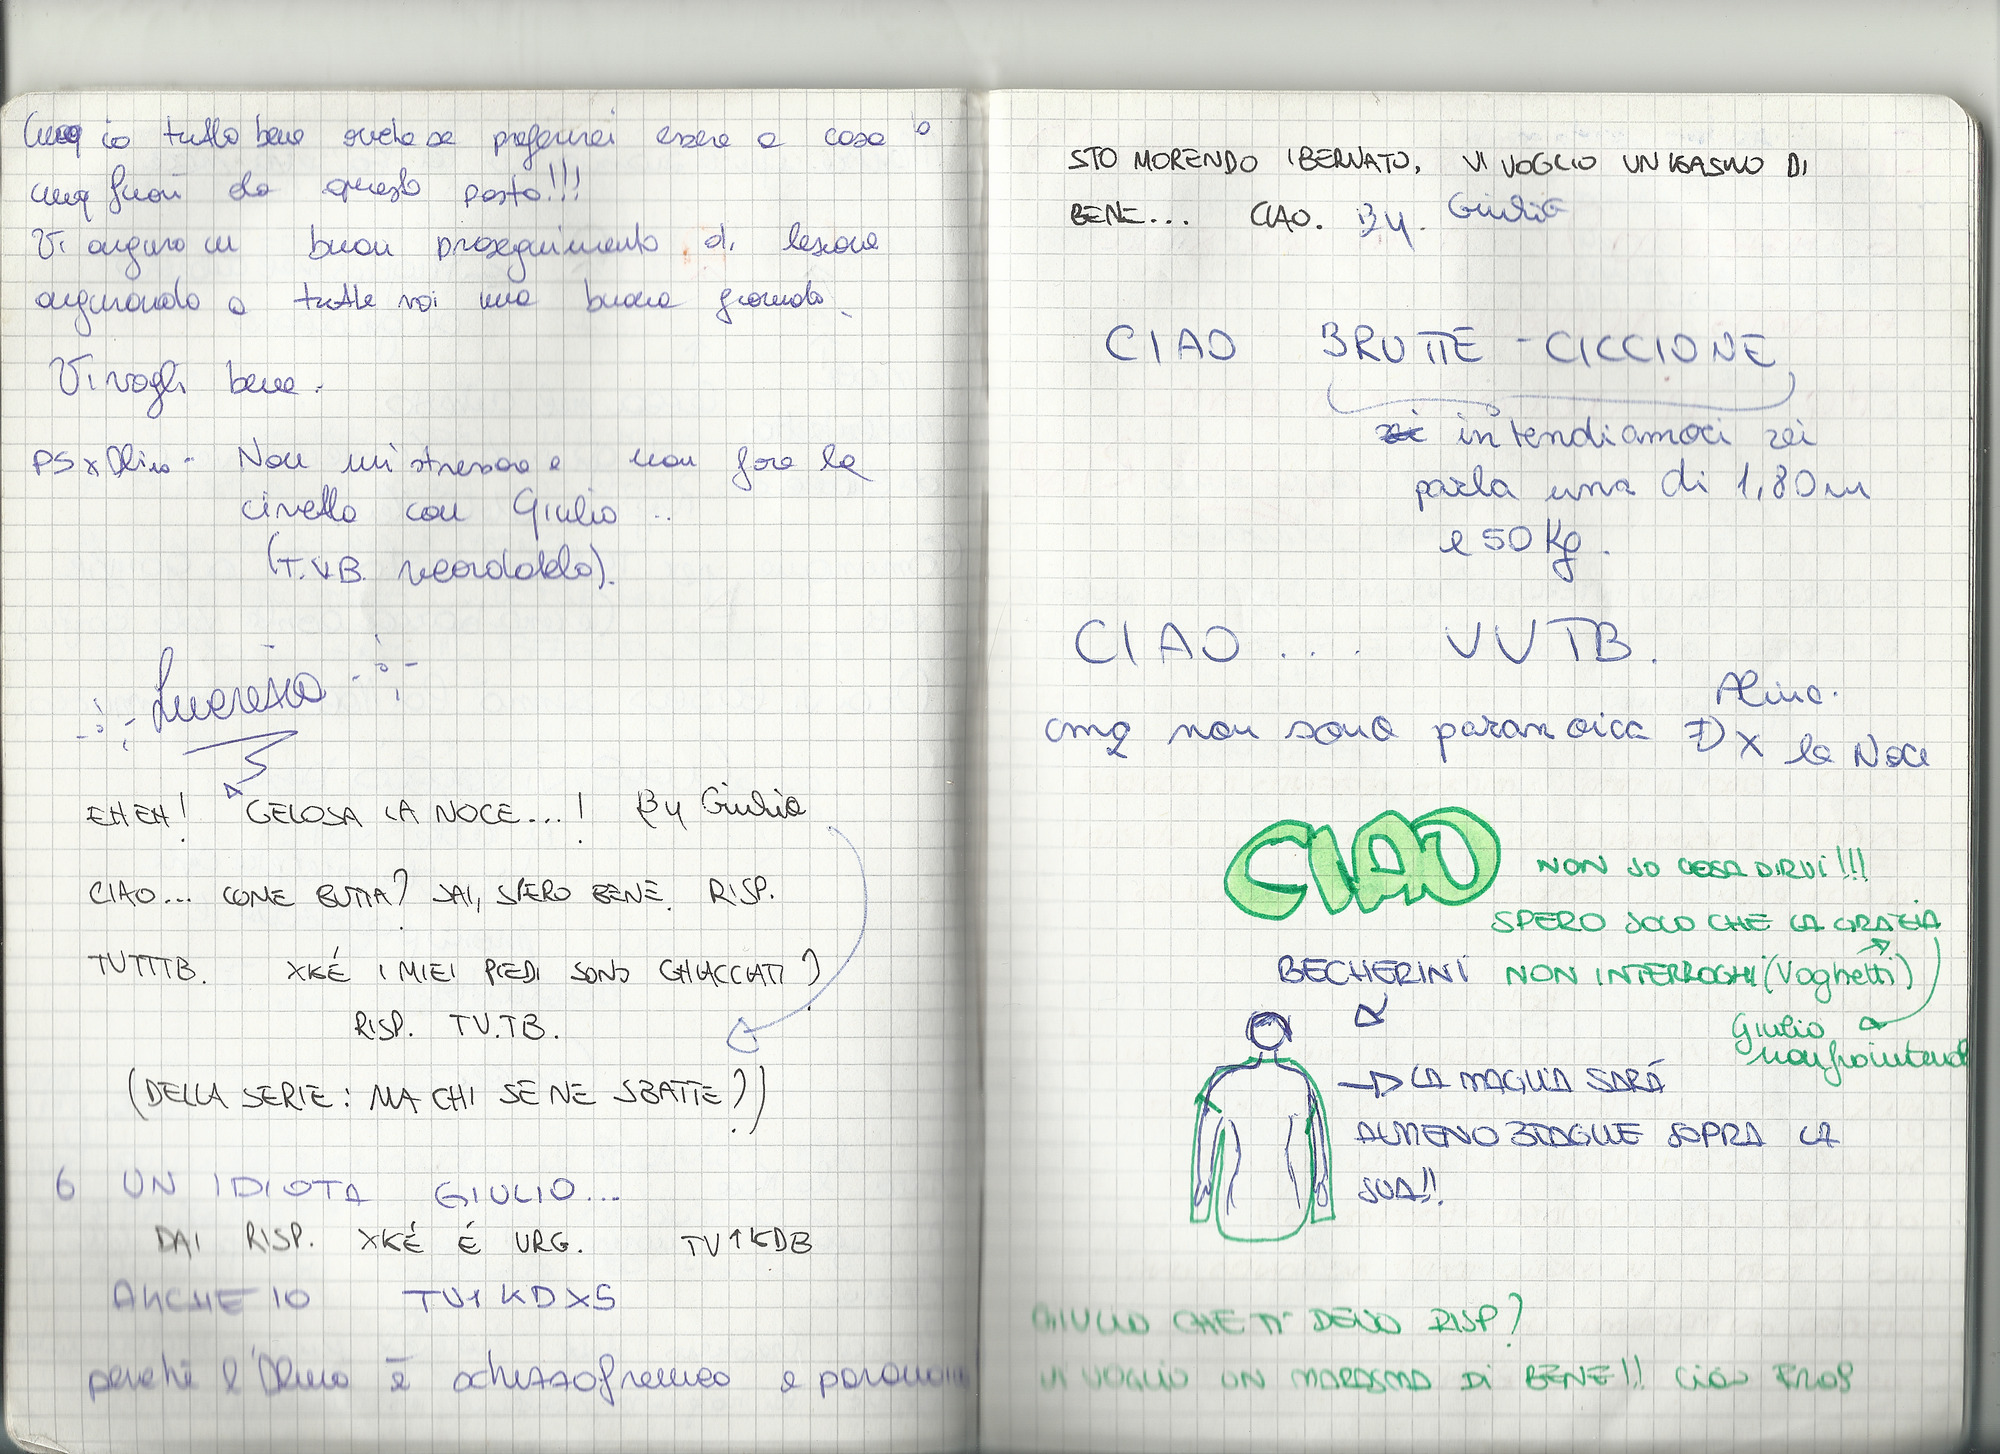 Cmq io tutto bene anche se preferirei essere a casa o
cmq fuori da questo posto!!!
Vi auguro un buon proseguimento di lezione
augurando a tutte voi una buona giornata.
Vi vogli bene.
PS x Alina - Non mi stressare e non fare la
civetta con Giulio ..
(T.V.B. ricordatelo).
Lucrezia
EHEH! GELOSA LA NOCE...! By Giulia
CIAO... COME BUTTA? SAI, SPERO BENE. RISP.
TVTTTB. XKÉ I MIEI PIEDI SONO GHIACCIATI?
RISP. TV.TB.
(DELLA SERIE: MA CHI SE NE SBATTE?))
6 UN IDIOTA GIULIO...
DAI RISP. XKÉ É URG. TV1KDB
ANCHE IO TV1KDXS
perché l'Alina è schizzofrenica e paranoica
STO MORENDO IBERNATO, VI VOGLIO UN DI
BENE... CIAO. By. Giulia
CIAO BRUTTE - CICCIONE
intendiamoci vi
parla una di 1,80 m
e 50 Kg.
CIAO .... VVTB.
Alina.
cmq non sono paranoica x la Noce
CIAO NON SO COSA DIRVI!!!
SPERO SOLO CHE LA GRAZIA
BECHERINI NON INTERROGHI (Voghetti)
Giulio
non fraintend
LA MAGLIA SARÁ
ALMENO 3 TAGLIE SOPRA LA
SUA!!
GIULIO CHE TI DEVO RISP?
VI VOGLIO UN MARASMA DI BENE!! Ciao